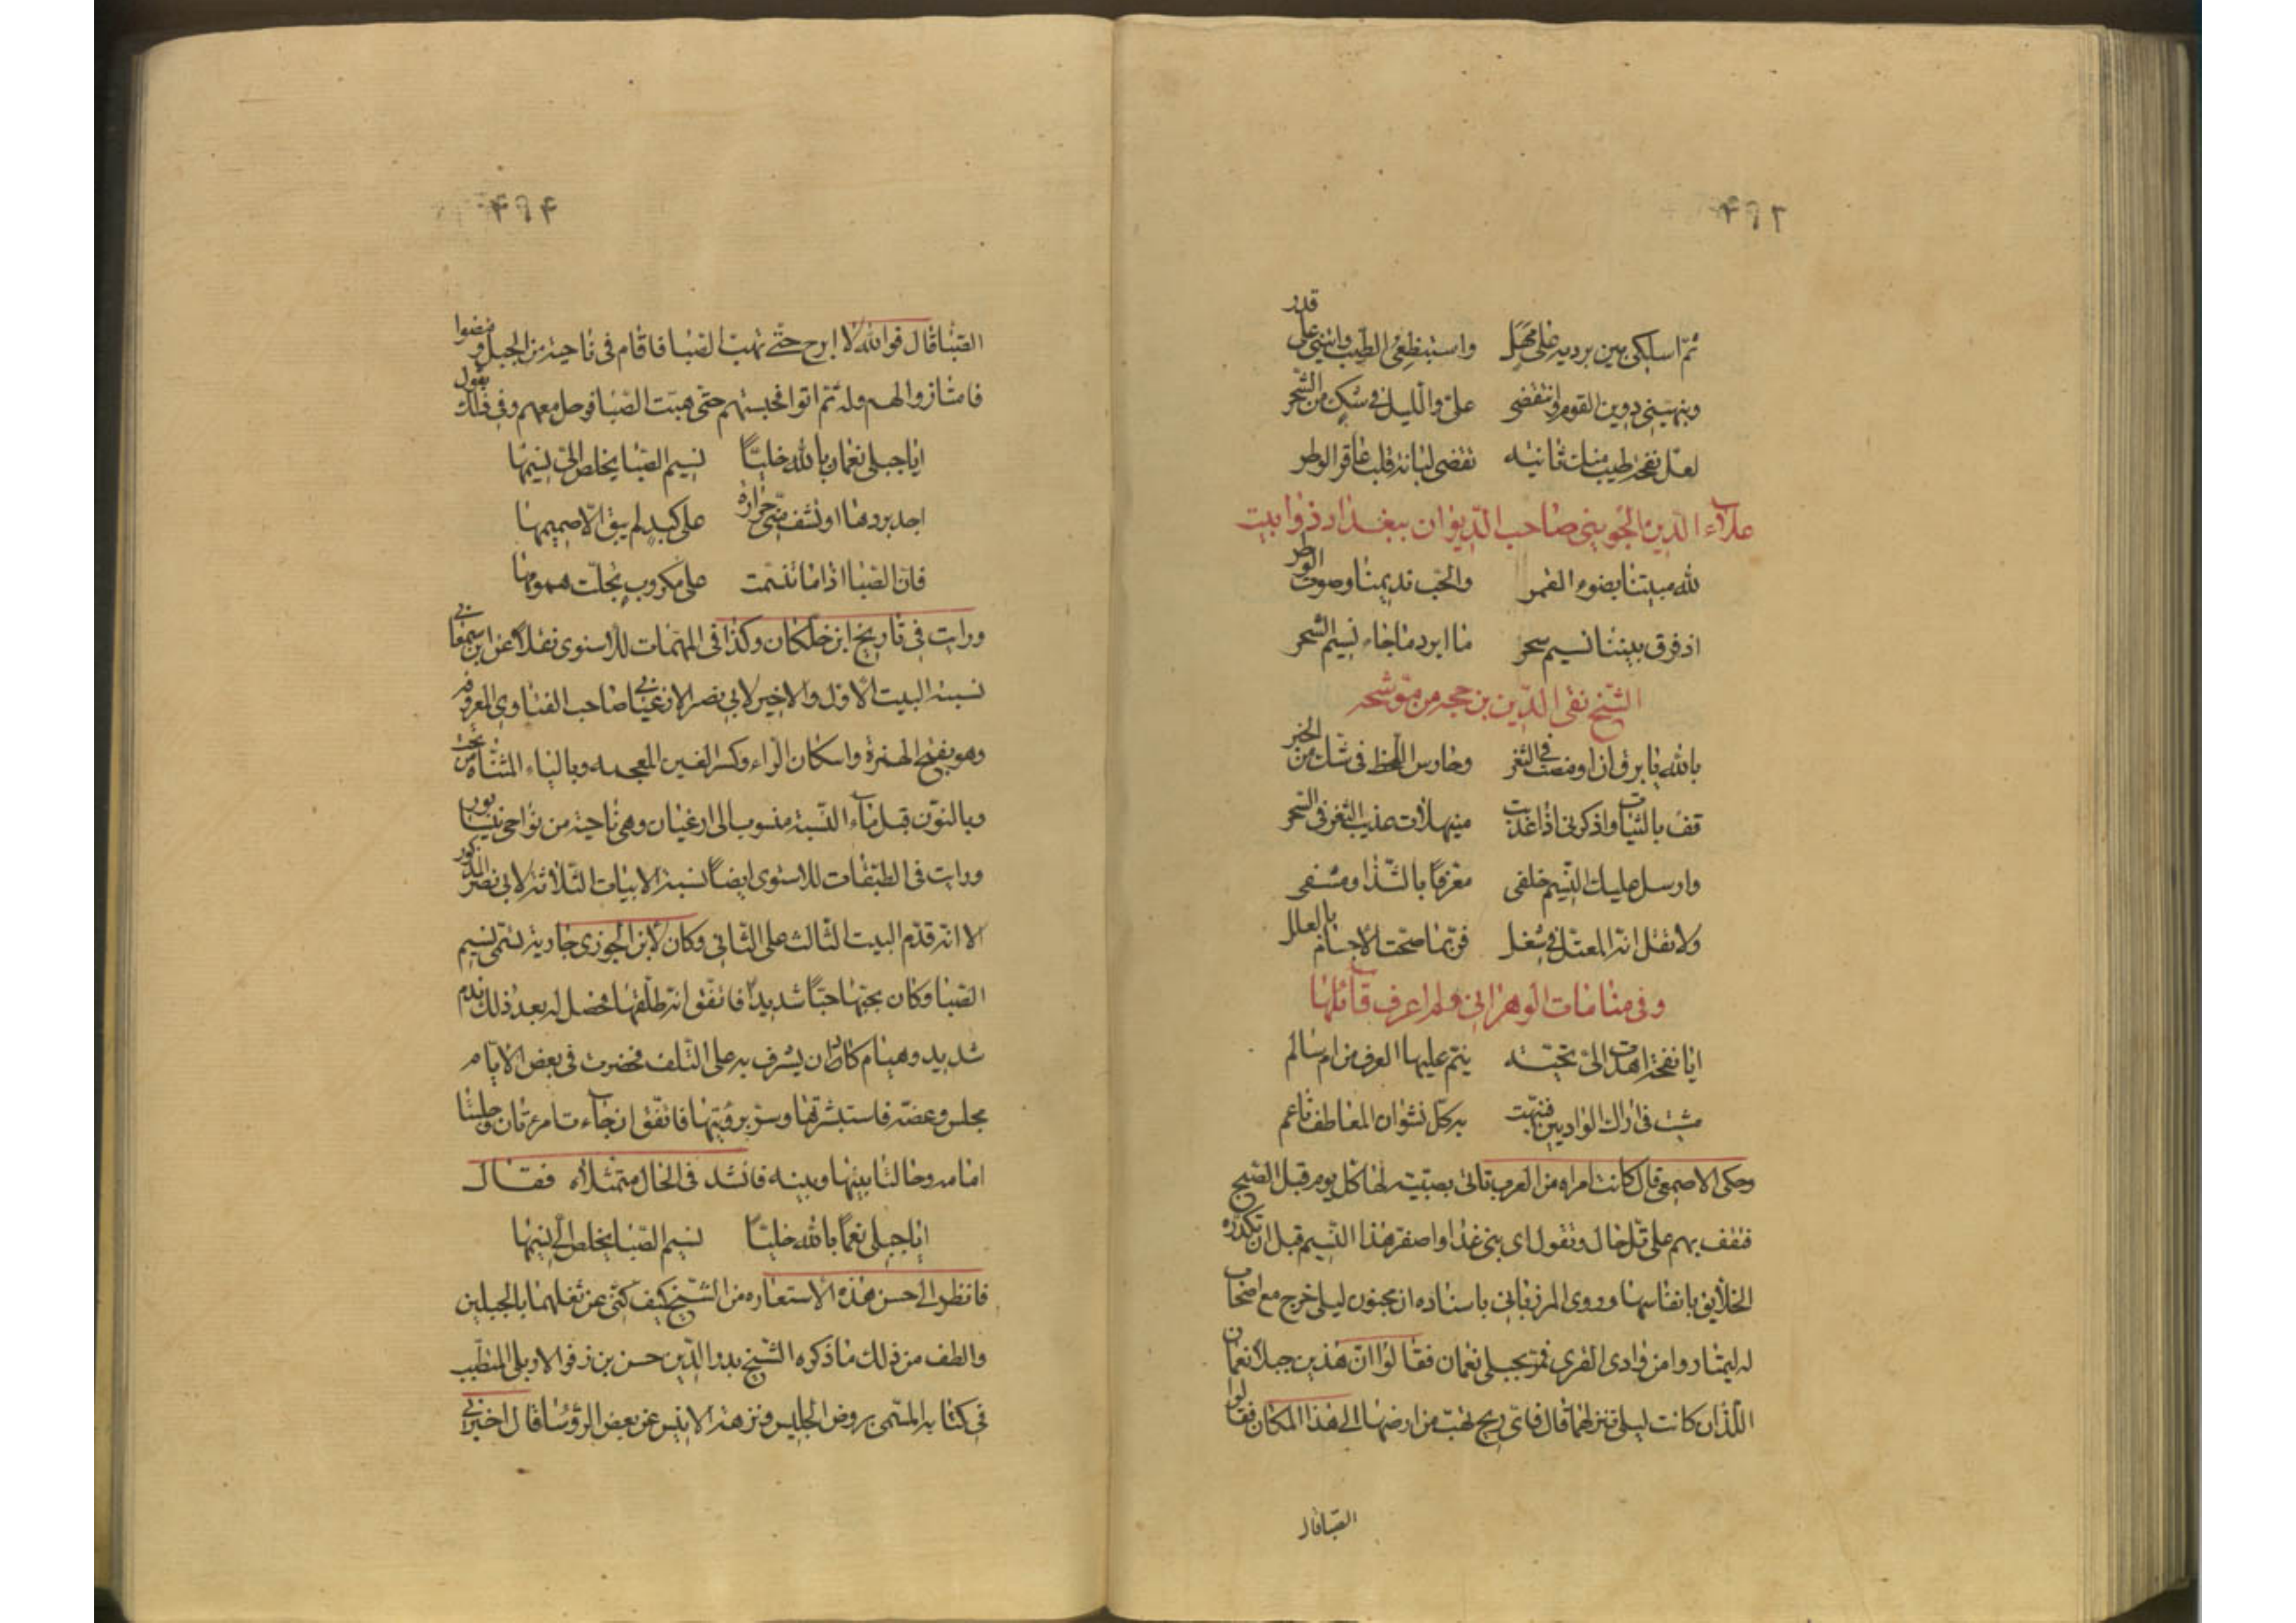 ۴۹۲
ثم اسلكى بين برديه على مهل واستبطنى الطيب وانثنى على قدر
ونبهينى دوين القوم وانتفضى على والليل فى شك من السحر
لعل نفحة طيب منك ثانية تقضى لبانة قلب عاقر الوطر
علاء الدين الجوينى صاحب الديوان ببغداد ذوابيت
لله مبيتنا بضوء القمر والحب نديمنا وصوت الوتر
اذ فرق بيننا نسيم سحر ما ابرد ما جاء نسيم السحر
الشيخ تقى الدين بن حجه من موشحه
بالله يا برق ان اومضت فى الثغر وحارس اللحظ فى شك من الخبر
قف بالثنيات واذكرنى اذا عذبت منهلات عذيب الثغر فى السحر
وارسل عليك النسيم خلفى معرفا بالشذا ومشفى
ولا تقل انه المعتل فى شغل فربما صحت الاجسام بالعلل
وفى منامات الوهرانى ولم اعرف قائلها
ايا نفحة اهدت الى تحية ينم عليها العرف من ام سالم
مشت فى اراك الواديين فنبهت به كل نشوان المعاطف ناعم
وحكى الاصمعى قال كانت امراه من العرب تاتى بصبية لها كل يوم قبل الصبح
فتقف بهم على تل خال وتقول اى بنى خذوا صفو هذا النسيم قبل ان تكدره
الخلايق بانفاسها وروى المرزبانى باسناده ان مجنون ليلى خرج مع اصحاب
له ليمتاروا من وادى القرى فمر بجبلى نعمان فقالوا ان هذين جبلا نعمان
اللذان كانت ليلى تنزلهما قال فاى ريح تهب من ارضها الى هذا المكان فقالوا
الصبا قال
۴۹۴
الصبا قال فوالله لا ابرح حتى تهب الصبا فاقام فى ناحية من الجبل ومضوا
فامتاروا لهم وله ثم اتوا فحبستهم حتى هبت الصبا فرحل معهم وفى ذلك يقول
ايا جبلى نعمان بالله خليا نسيم الصبا يخلص الى نسيمها
اجد بردها او تشف منى حرارة على كبد لم يبق الا صميمها
فان الصبا اذا ما تنسمت على مكروب تجلت همومها
ورايت فى تاريخ ابن خلكان وكذا فى المهمات للاسنوى نقلا عن ابن سمعانى
نسبة البيت الاول والاخير لابى نصر الارغيانى صاحب الفتاوى المعروفه
وهو بفتح الهمزة واسكان الراء وكسر الغين المعجمه وبالياء المثناة من تحت
وبالنون قبل ياء النسبة منسوب الى ارغيان وهى ناحية من نواحى نيسابور
ورايت فى الطبقات للاسنوى ايضا نسبة الابيات الثلاثة لابى نصر المذكور
الا انه قدم البيت الثالث على الثانى وكان لابن الجوزى جارية تسمى نسيم
الصبا وكان يحبها حبا شديدا فاتفق انه طلقها فحصل له بعد ذلك ندم
شديد وهيام كاد ان يشرف به على التلف فحضرت فى بعض الايام
مجلس وعضه فاستبشر بها وسر برويتها فاتفق ان جاءت امرءتان وجلستا
امامه وحالتا بينها وبينه فانشد فى الحال متمثلا فقال
ايا جبلى نعما بالله خليا نسيم الصبا يخلص الى نسيمها
فانظر الى حسن هذه الاستعاره من الشيخ كيف كنى عن ثقلهما بالجبلين
والطف من ذلك ما ذكره الشيخ بدر الدين حسن بن زفر الاربلى المتطبب
فى كتابه المسمى بروض الجليس ونزهة الانيس عن بعض الرؤسا قال اخبرنى